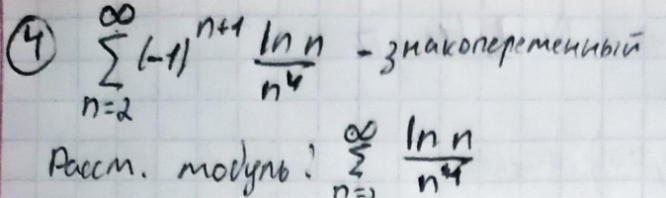 ④ ∑_{n=2}^{∞} (-1)^{n+1} \frac{ln n}{n^4} - знакопеременный
Рассм. модуль: ∑_{n=2}^{∞} \frac{ln n}{n^4}